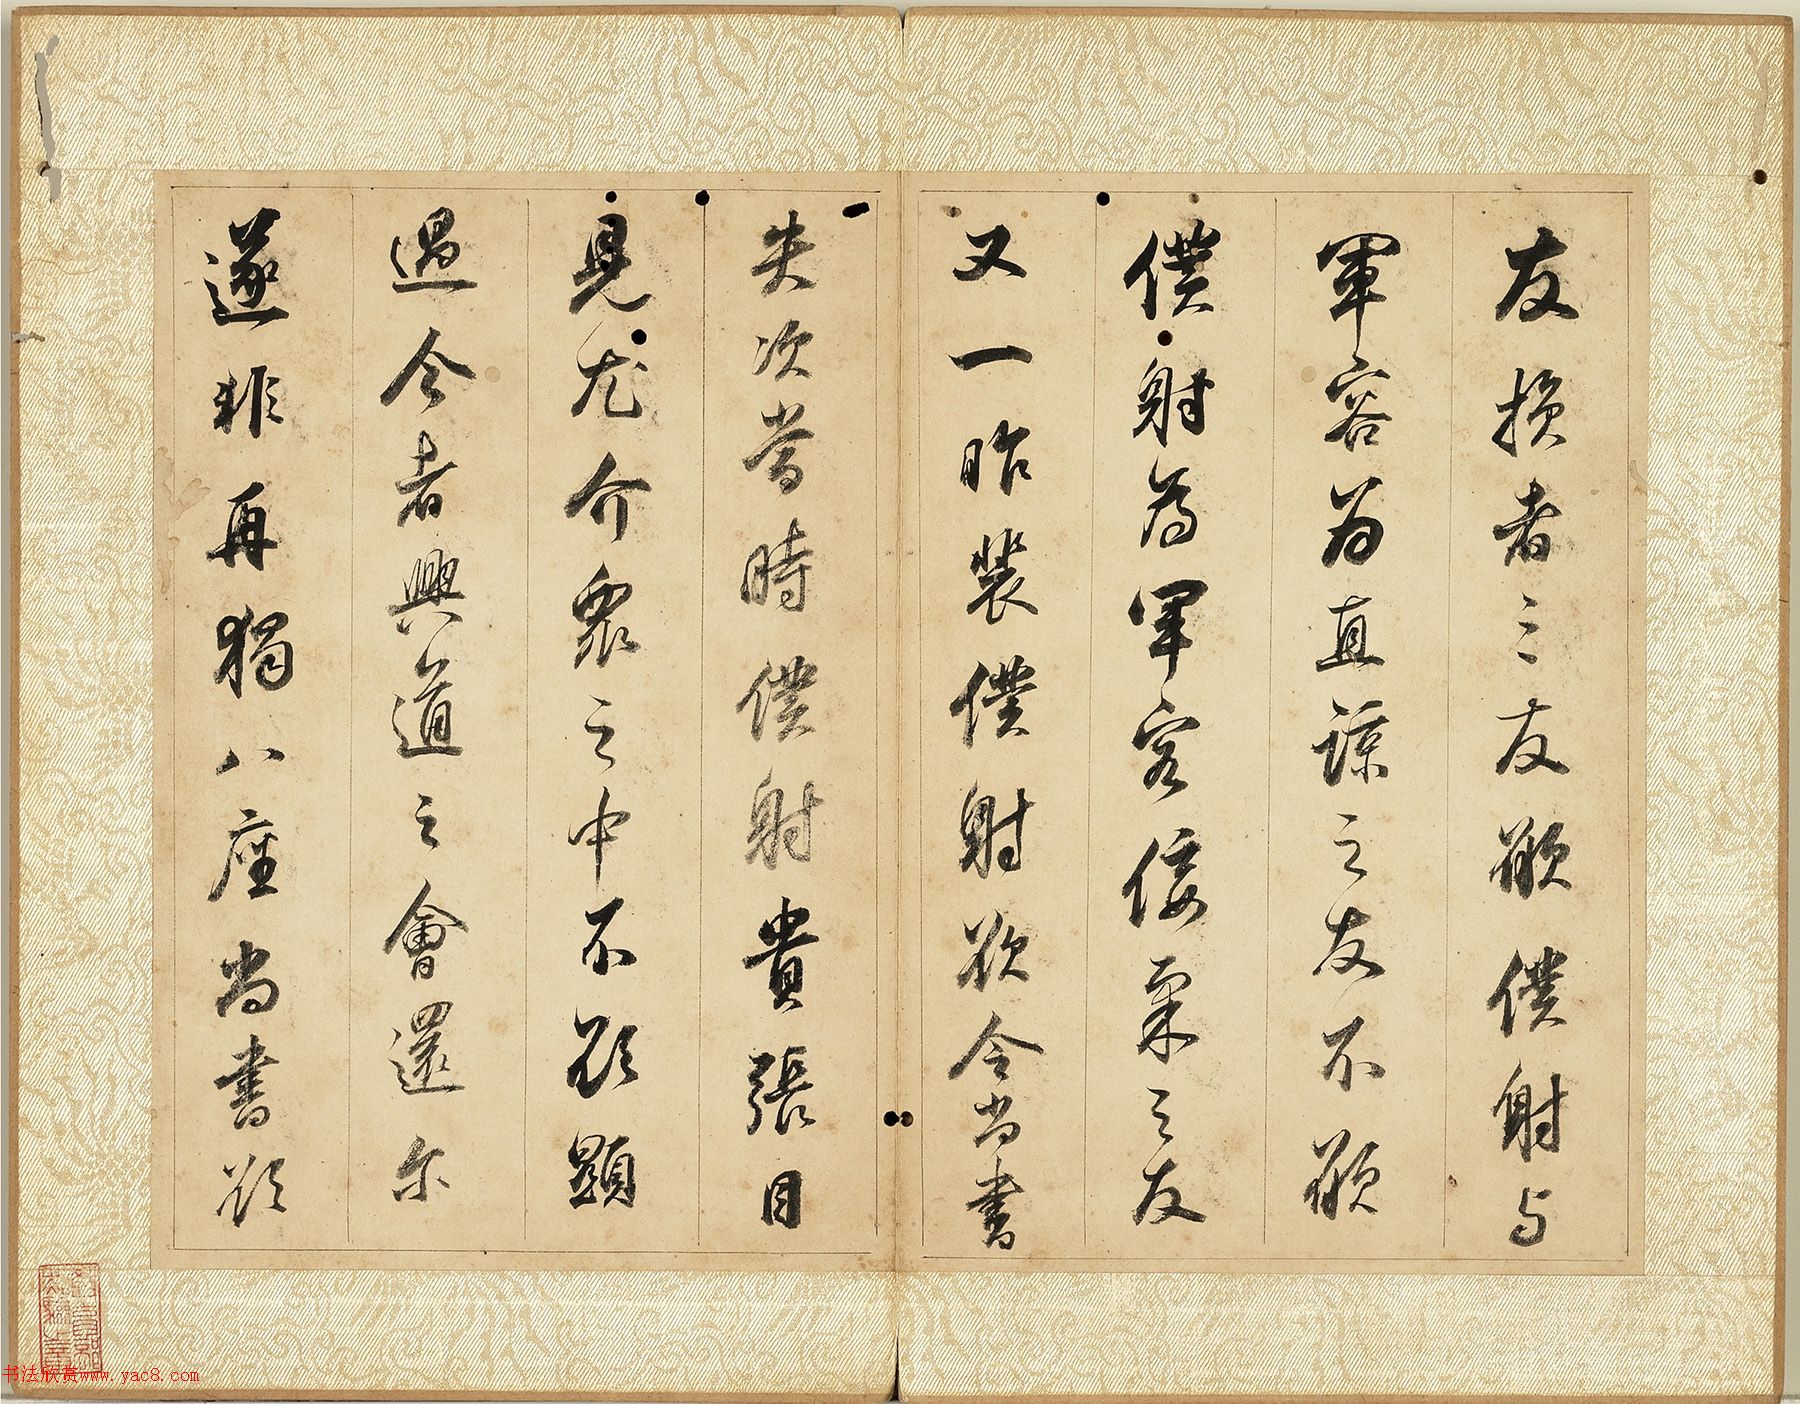 友損者三友願僕射与
軍容為直諒之友不願
僕射為軍容佞柔之友
又一昨裴僕射欲令尚書
失次當時僕射貴張目
見尤介衆之中不欲顯
過今者興道之會還尔
遂非再猲八座尚書欲
书法欣赏www.yac8.com